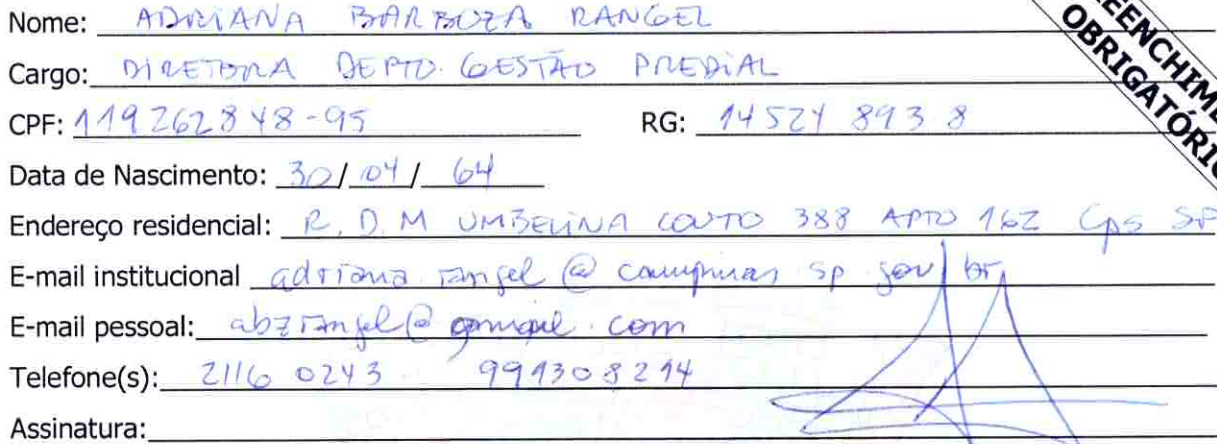 PREENCHIMENTO
OBRIGATÓRIO
Nome: ADRIANA BARBOZA RANGEL
Cargo: DIRETORA DEPTO. GESTÃO PREDIAL
CPF: 119262848-95 RG: 14521 893 8
Data de Nascimento: 30/04/64
Endereço residencial: R. D. M UMBELINA COUTO 388 APTO 162 Cps SP
E-mail institucional adriana.rangel@campinas.sp.gov.br
E-mail pessoal: abzrangel@gmail.com
Telefone(s): 2116 0243 991308214
Assinatura: